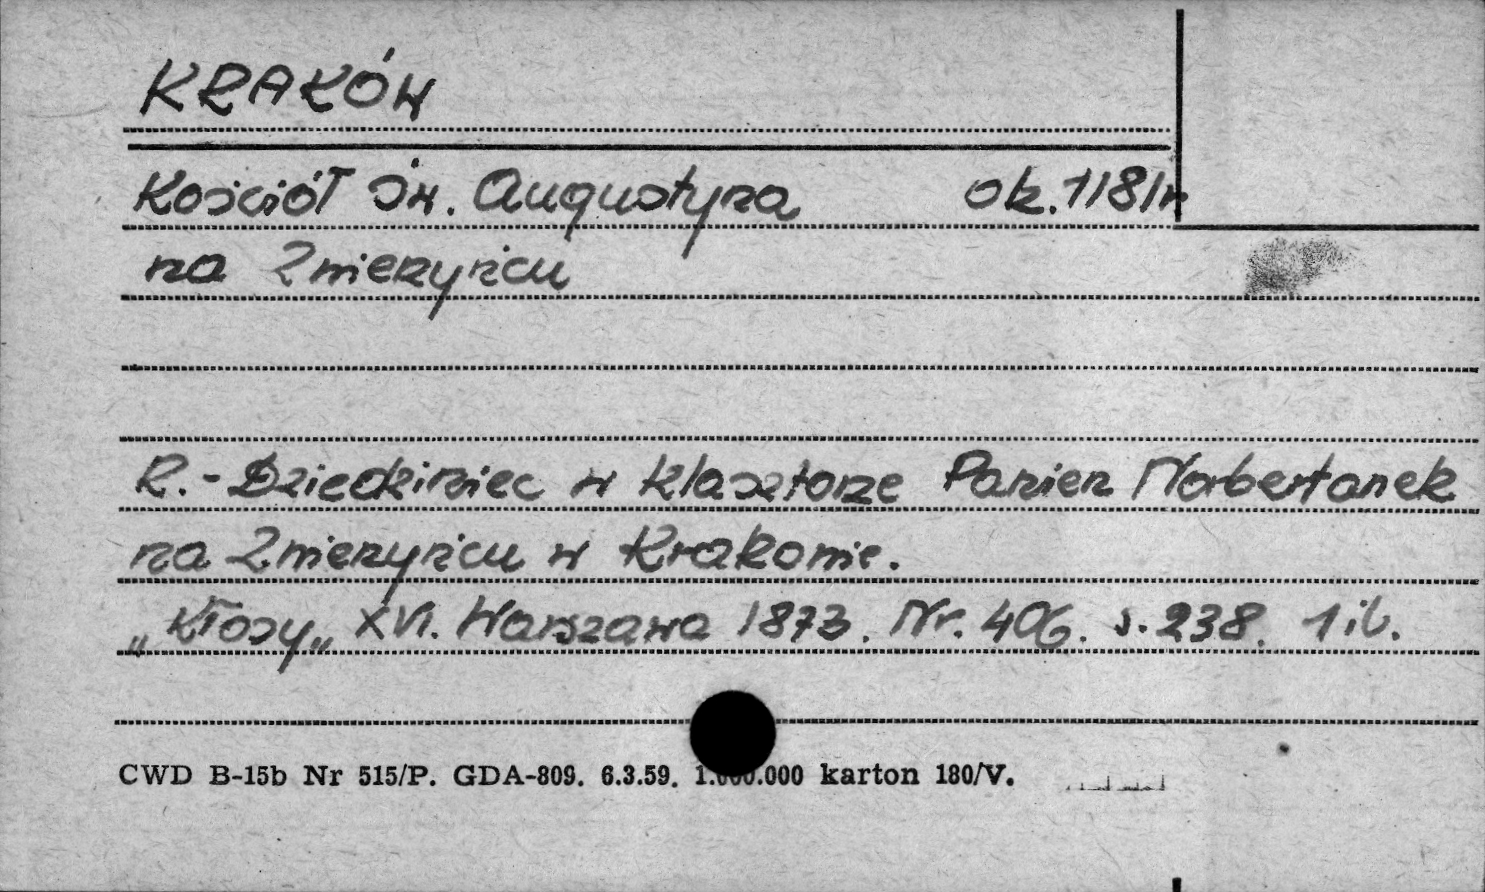 KRAKÓW
Kościół Św. Augustyna ok. 1181r
na Zwierzyńcu
R. - Dziedziniec w klasztorze Panien Norbertanek
na Zwierzyńcu w Krakowie.
„Kłosy„ XVI. Warszawa 1873. Nr. 406. s. 238. 1 il.
CWD B-15b Nr 515/P. GDA-809. 6.3.59. 1.000.000 karton 180/V.